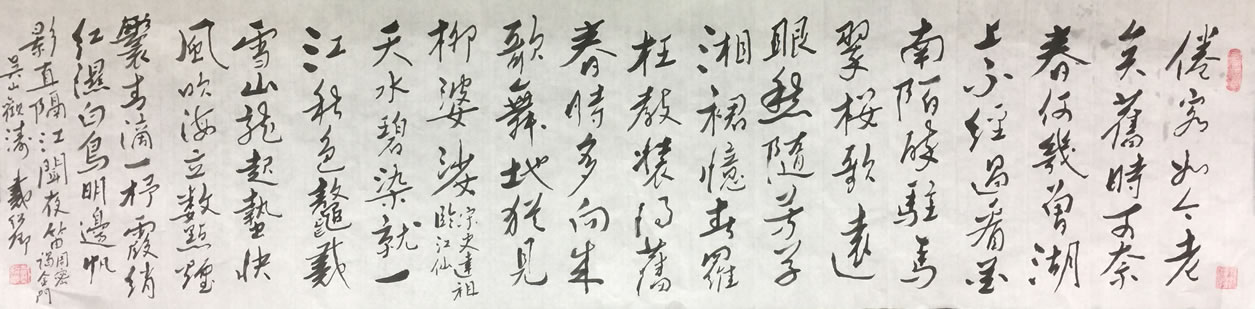 倦客如今老
矣舊時可奈
春何幾曾湖
上不經過看花
南陌醉駐馬
翠楼歌遠
眼愁隨芳草
湘裙憶春羅
枉教裝得舊
春時多向來
歌舞地猶見
柳婆娑 宋史達祖
臨江仙
天水碧染就一
江秋色鼇戴
雪山龍起蟄快
風吹海立數點煙
鬟青滴一杼霞綃
紅濕白鳥明邊帆
影直隔江聞夜笛 周密
謁金門
吳山觀濤 戴